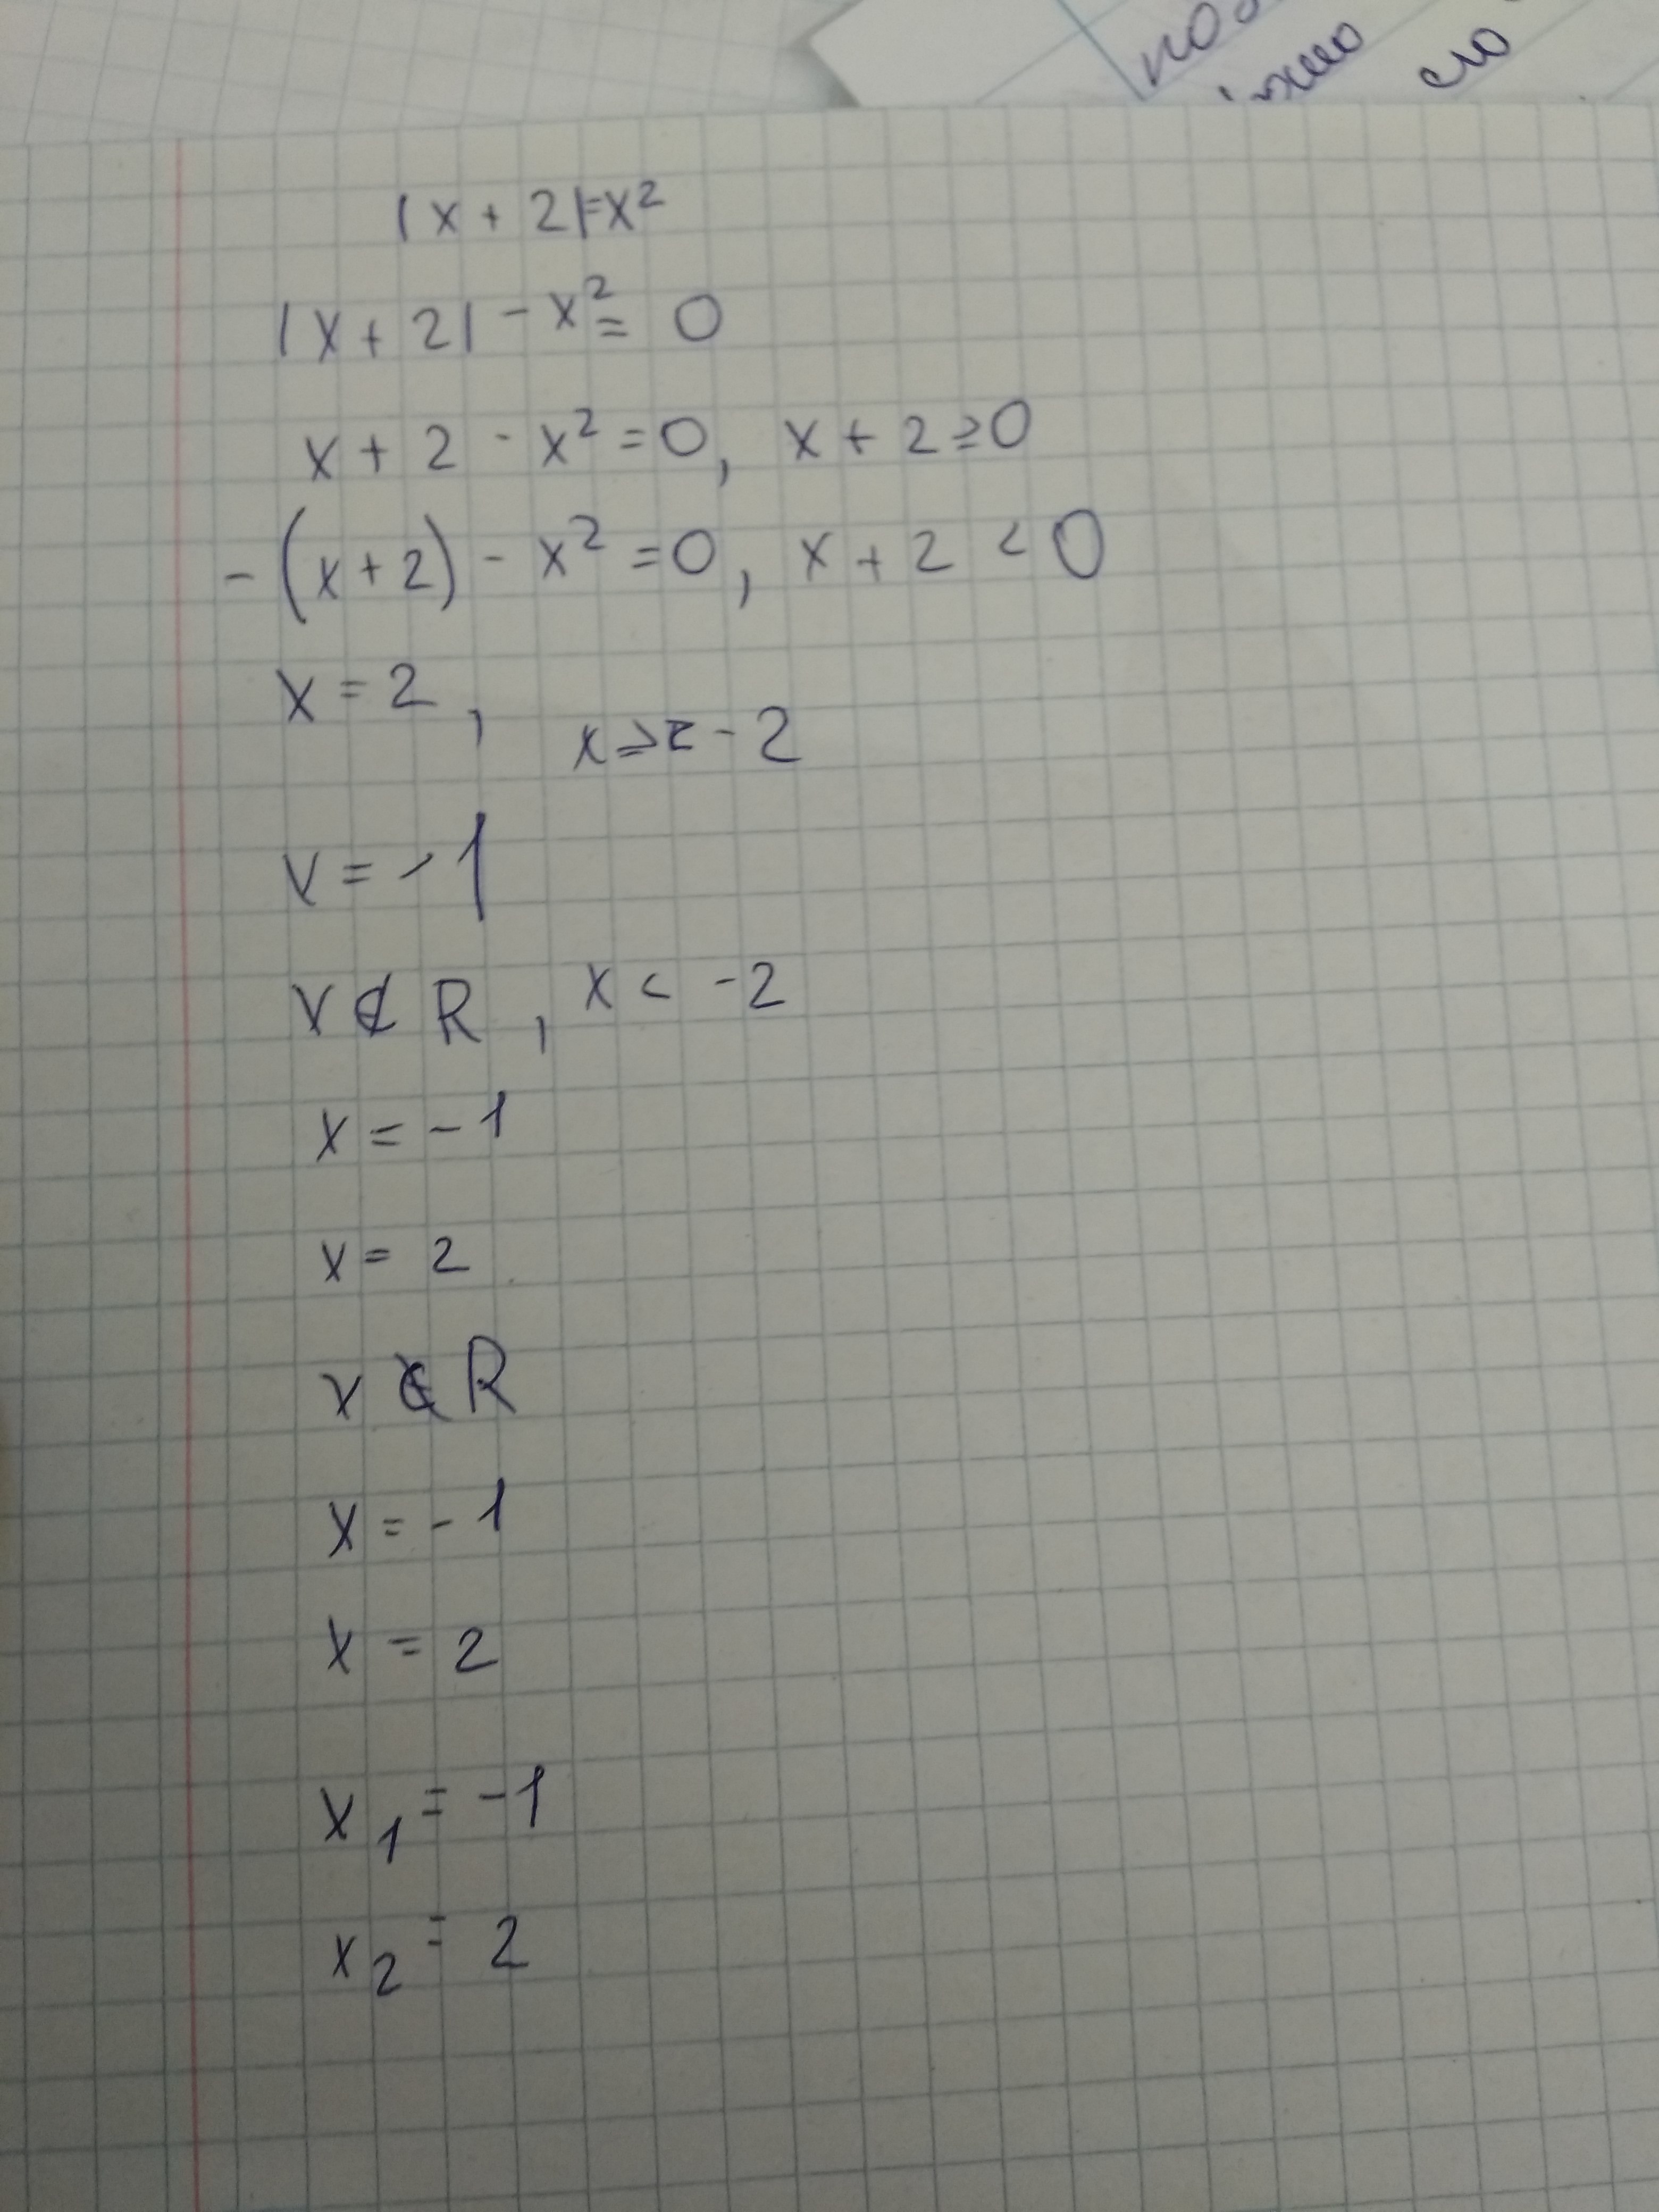 по
сю
|x + 2|=x²
|x + 2| - x² = 0
x + 2 - x² = 0, x + 2 ≥ 0
- (x + 2) - x² = 0, x + 2 < 0
x = 2, x ≥ - 2
x = - 1
x ∉ R, x < -2
x = - 1
x = 2
x ∉ R
x = - 1
x = 2
x₁ = -1
x₂ = 2